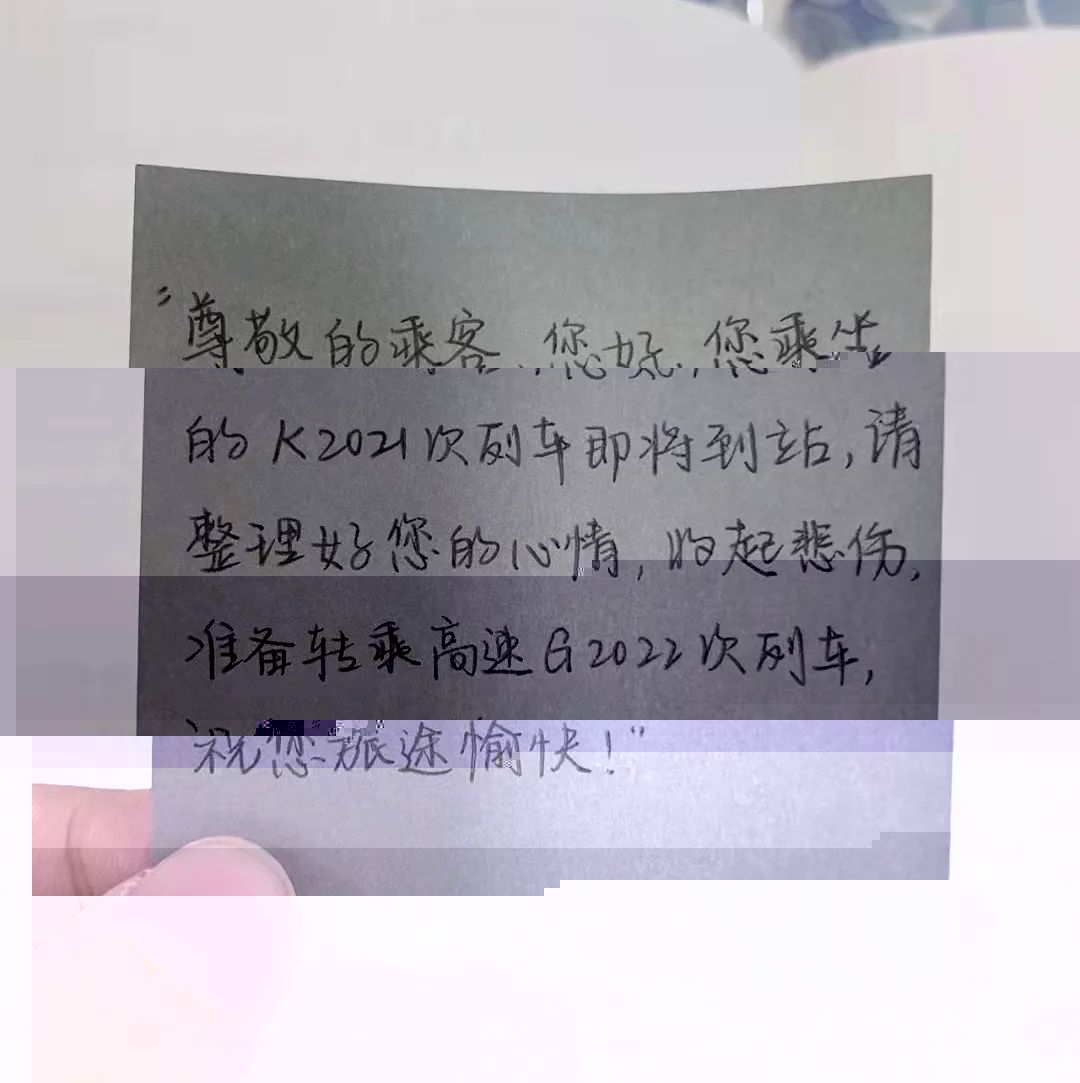 “尊敬的乘客,您好,您乘坐
的K2021次列车即将到站,请
整理好您的心情,收起悲伤,
准备转乘高速G2022次列车,
祝您旅途愉快!”